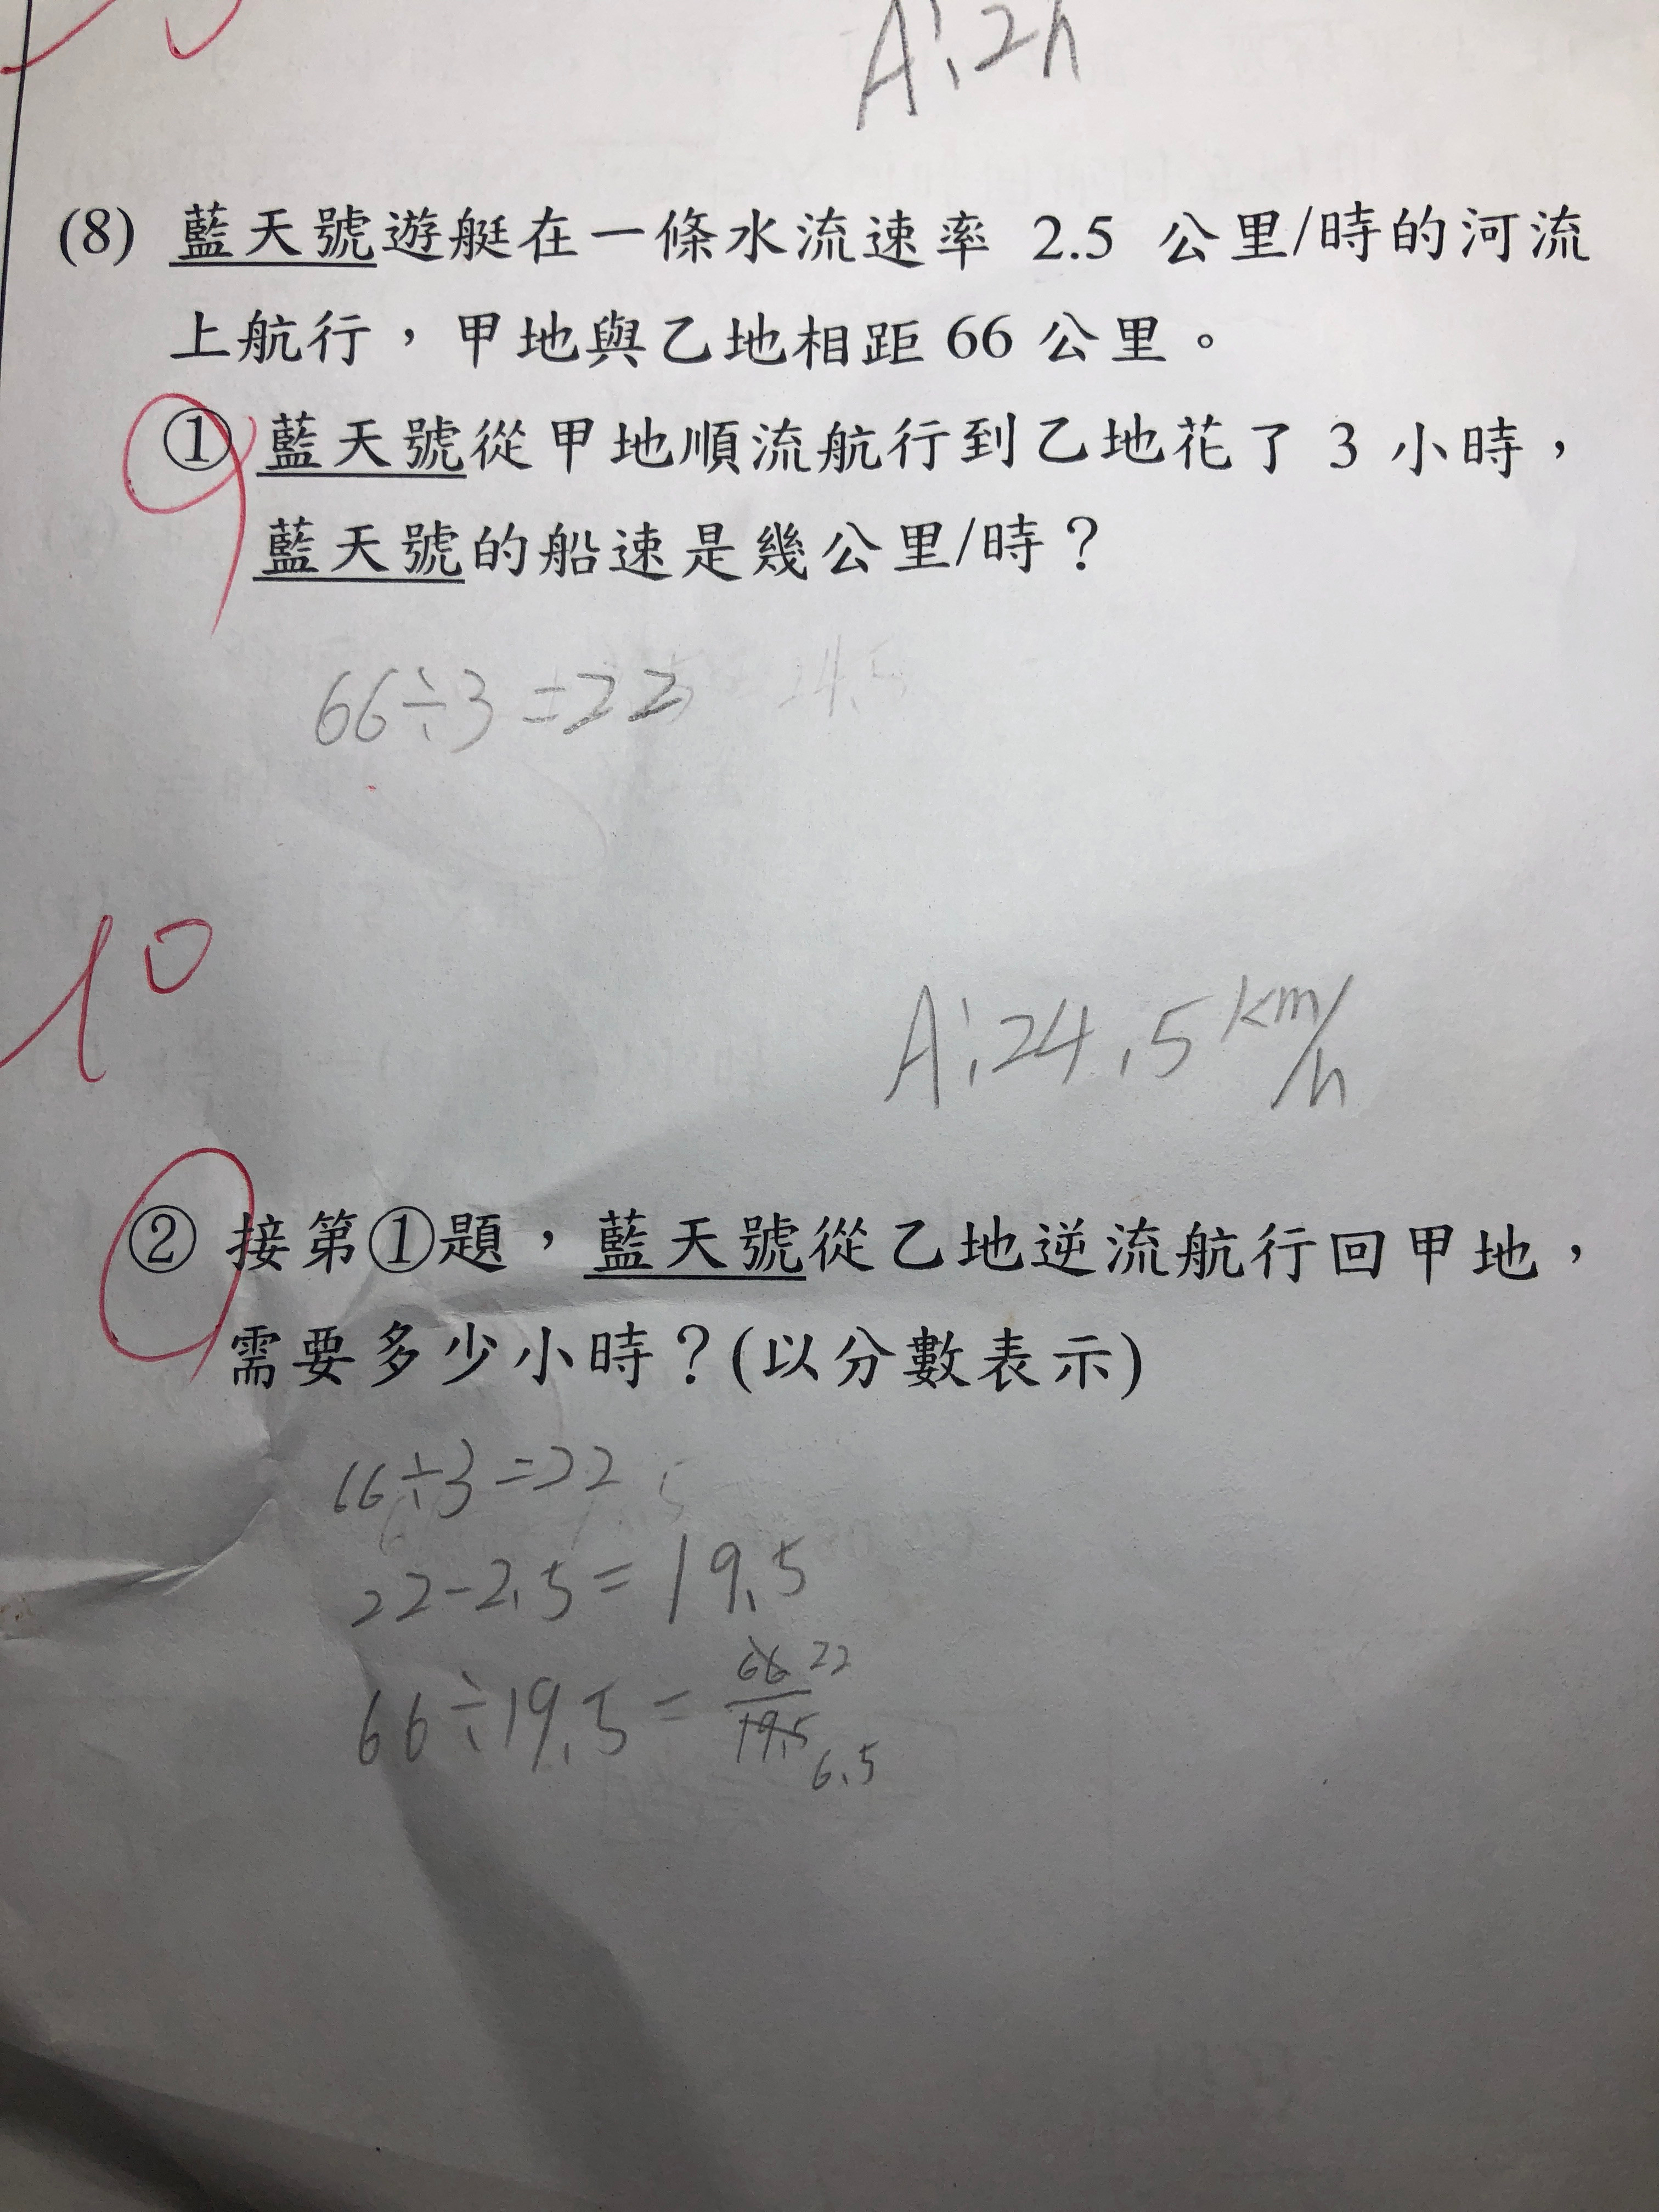 A:2h
(8) 藍天號遊艇在一條水流速率 2.5 公里/時的河流
上航行，甲地與乙地相距 66 公里。
① 藍天號從甲地順流航行到乙地花了 3 小時，
藍天號的船速是幾公里/時？
66÷3=22
10
A:24.5 km/h
② 接第①題，藍天號從乙地逆流航行回甲地，
需要多少小時？(以分數表示)
66÷3=22
22-2.5=19.5
66÷19.5= 66/19.5 22 6.5